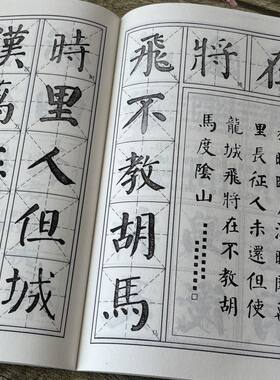 在
將
里長征人未還但使
龍城飛將在不教胡
馬度陰山
飛不教胡馬
時里人但城
漢萬